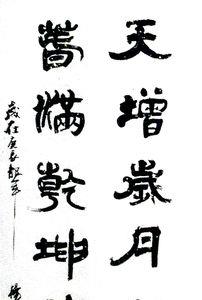 天增歲月
春滿乾坤
歲在庚辰